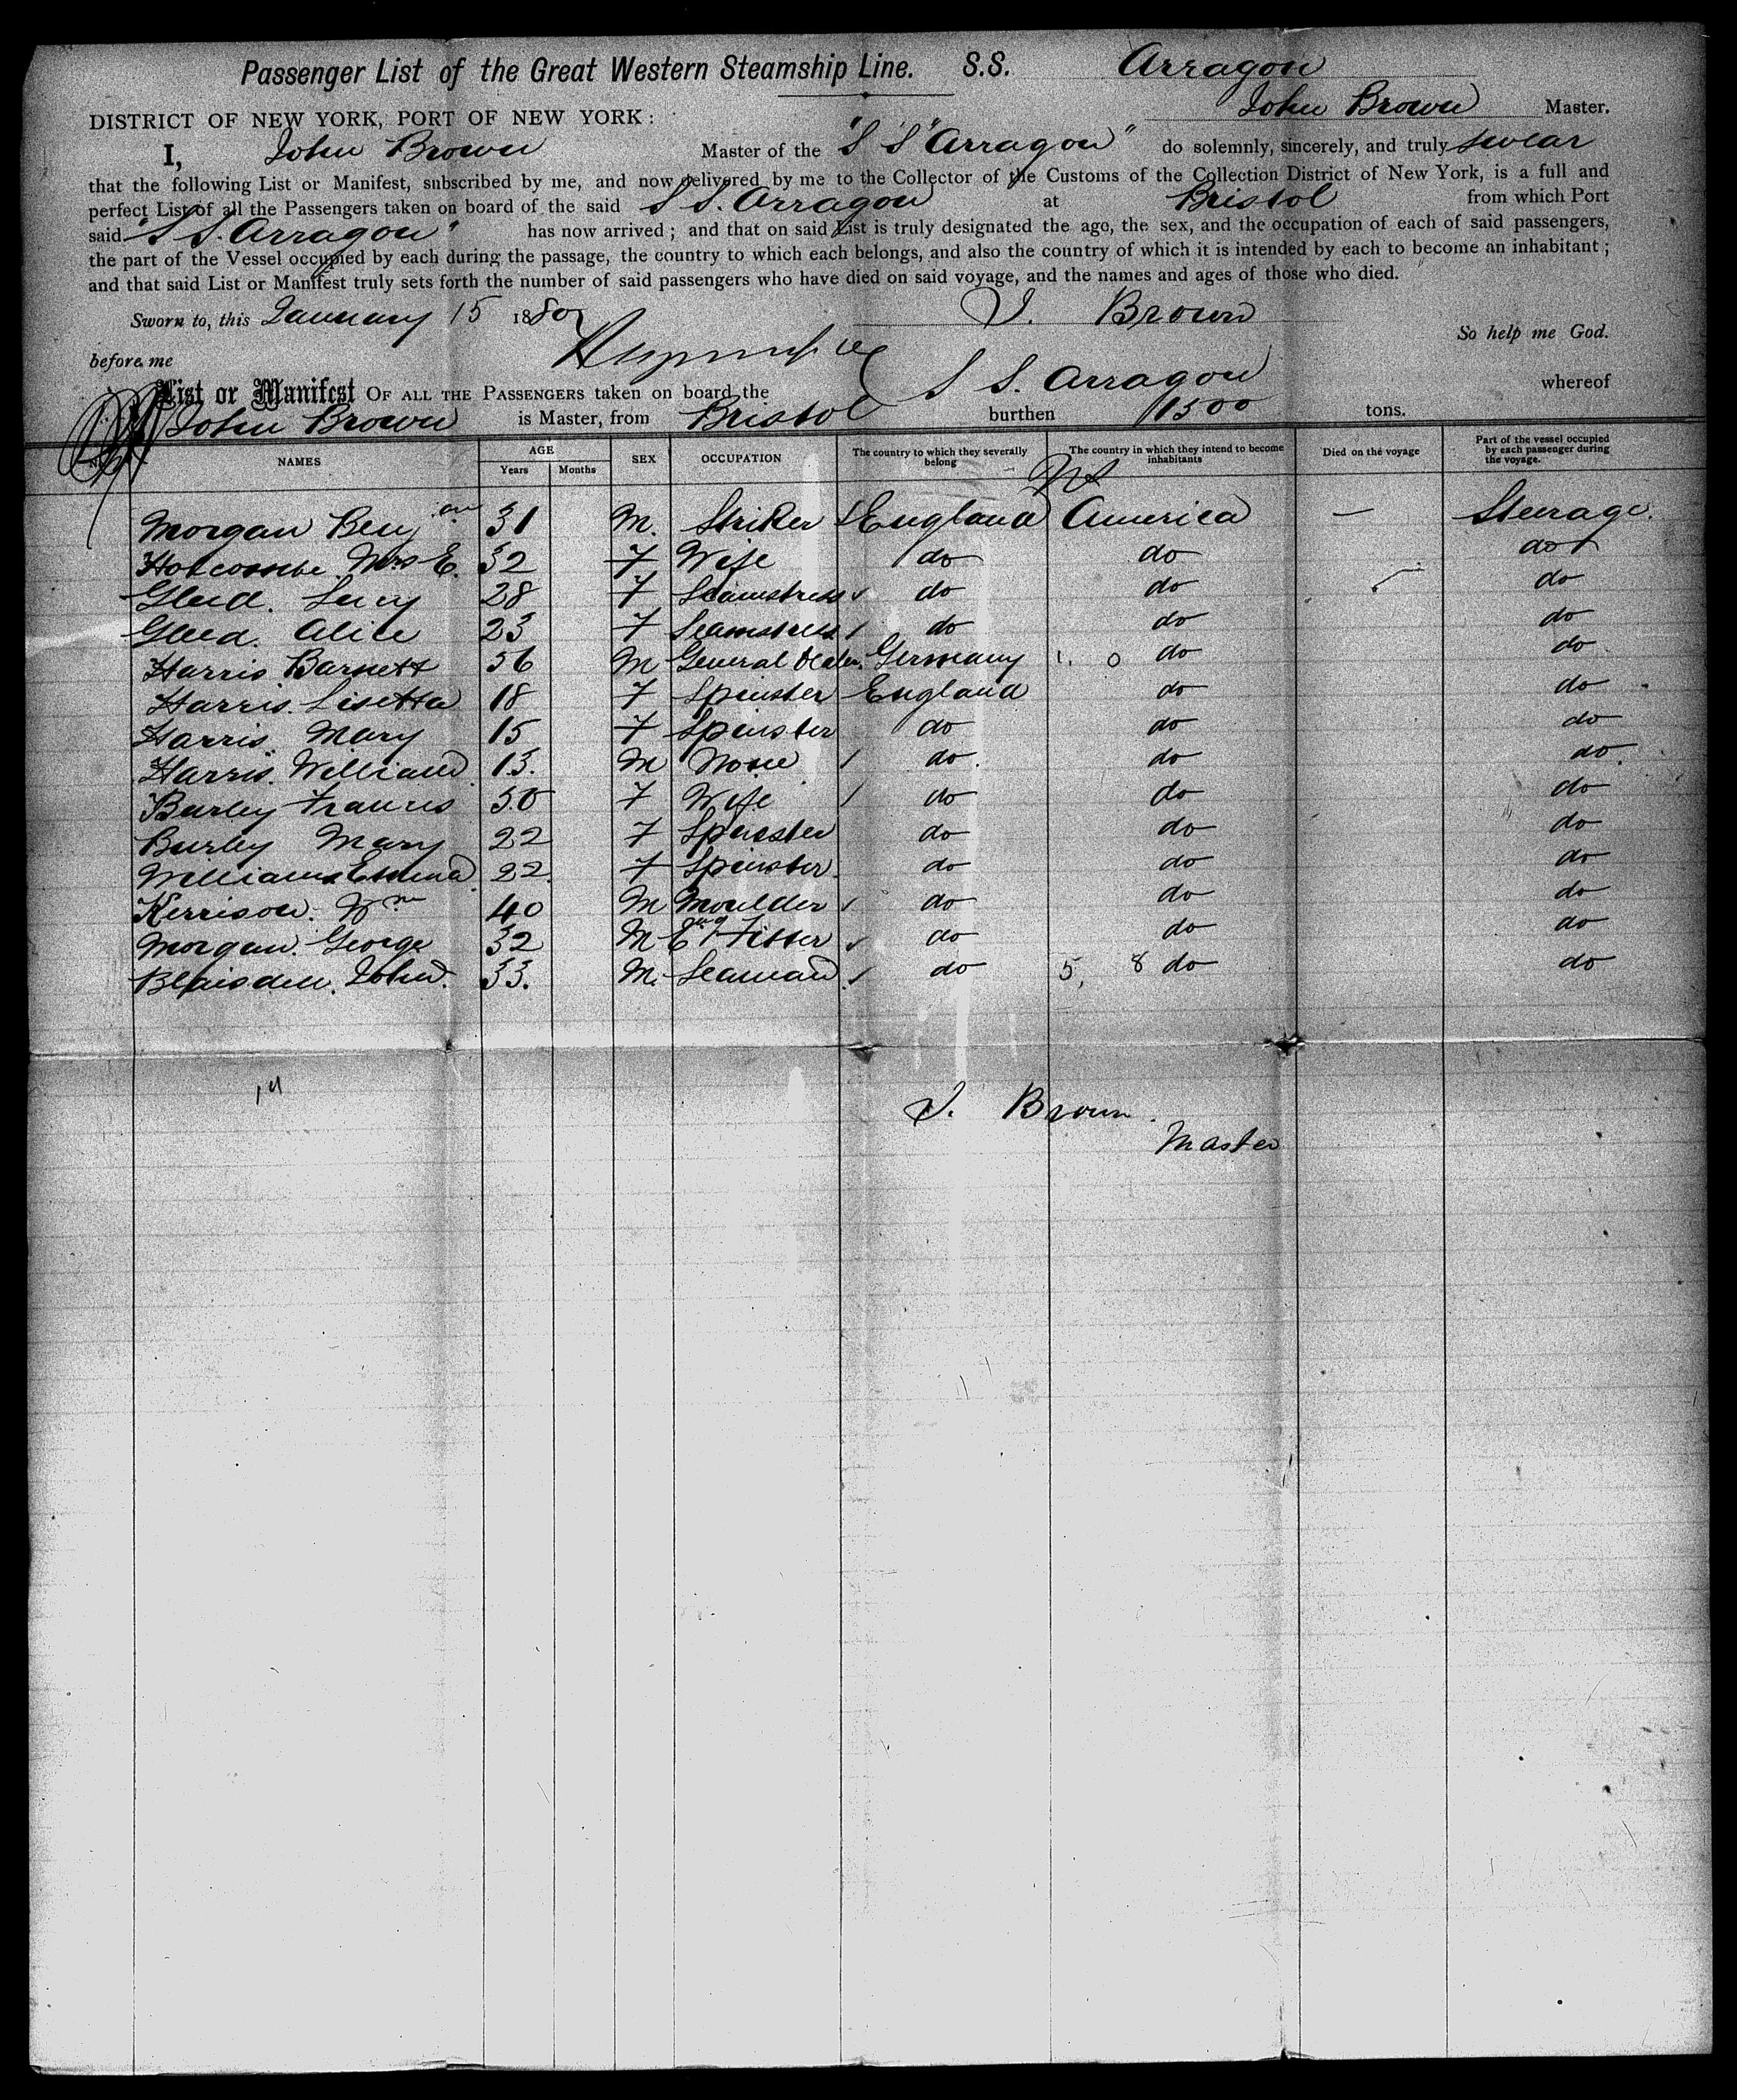 Passenger List of the Great Western Steamship Line. S.S. Arragon
DISTRICT OF NEW YORK, PORT OF NEW YORK: John Brown Master.
I, John Brown Master of the "S S "Arragon" do solemnly, sincerely, and truly swear
that the following List or Manifest, subscribed by me, and now delivered by me to the Collector of the Customs of the Collection District of New York, is a full and
perfect List of all the Passengers taken on board of the said S S. Arragon at Bristol from which Port
said "S S. Arragon" has now arrived; and that on said List is truly designated the age, the sex, and the occupation of each of said passengers,
the part of the Vessel occupied by each during the passage, the country to which each belongs, and also the country of which it is intended by each to become an inhabitant;
and that said List or Manifest truly sets forth the number of said passengers who have died on said voyage, and the names and ages of those who died.
Sworn to, this January 15 1880 J. Brown
So help me God.
before me
List or Manifest OF ALL THE PASSENGERS taken on board the S S. Arragon whereof
John Brown is Master, from Bristol burthen 1500 tons.
NAMES AGE Years Months SEX OCCUPATION The country to which they severally belong The country in which they intend to become inhabitants Died on the voyage Part of the vessel occupied by each passenger during the voyage.
Morgan Benj an 31 M. Striker England America — Steerage.
Holcombe Mrs E. 32 F Wife do do do
Gleed. Lucy 28 F Seamstress do do do
Gleed. Alice 23 F Seamstress do do do
Harris Barnett 56 M General Dealer. Germany 1. 0 do do
Harris. Lisetta 18 F Spinster England do do
Harris. Mary 15 F Spinster do do do
Harris. William 13. M None do do do
Burley Frances 50 F Wife do do do
Burley Mary 22 F Spinster do do do
Williams Emma 22 F Spinster do do do
Kerrison. Wm 40 M Moulder do do do
Morgan. George 32 M Eng Fitter do do do
Blaisdell. John. 33. M. Seaman do 5, 8 do do
14
J. Brown
Master